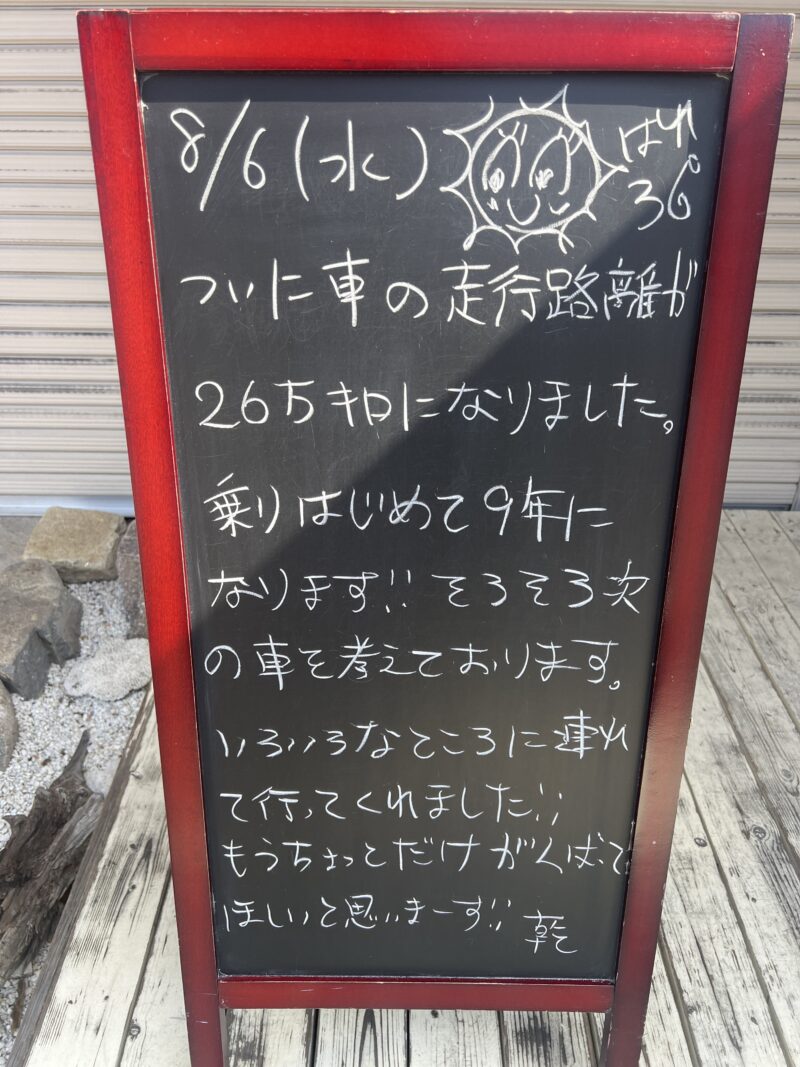 8/6(水) はれ 36°
ついに車の走行路離が
26万キロになりました。
乗りはじめて9年に
なります!! そろそろ次
の車を考えております。
いろいろなところに連れ
て行ってくれました!!
もうちょっとだけがんばって
ほしいと思いまーす!! 乾